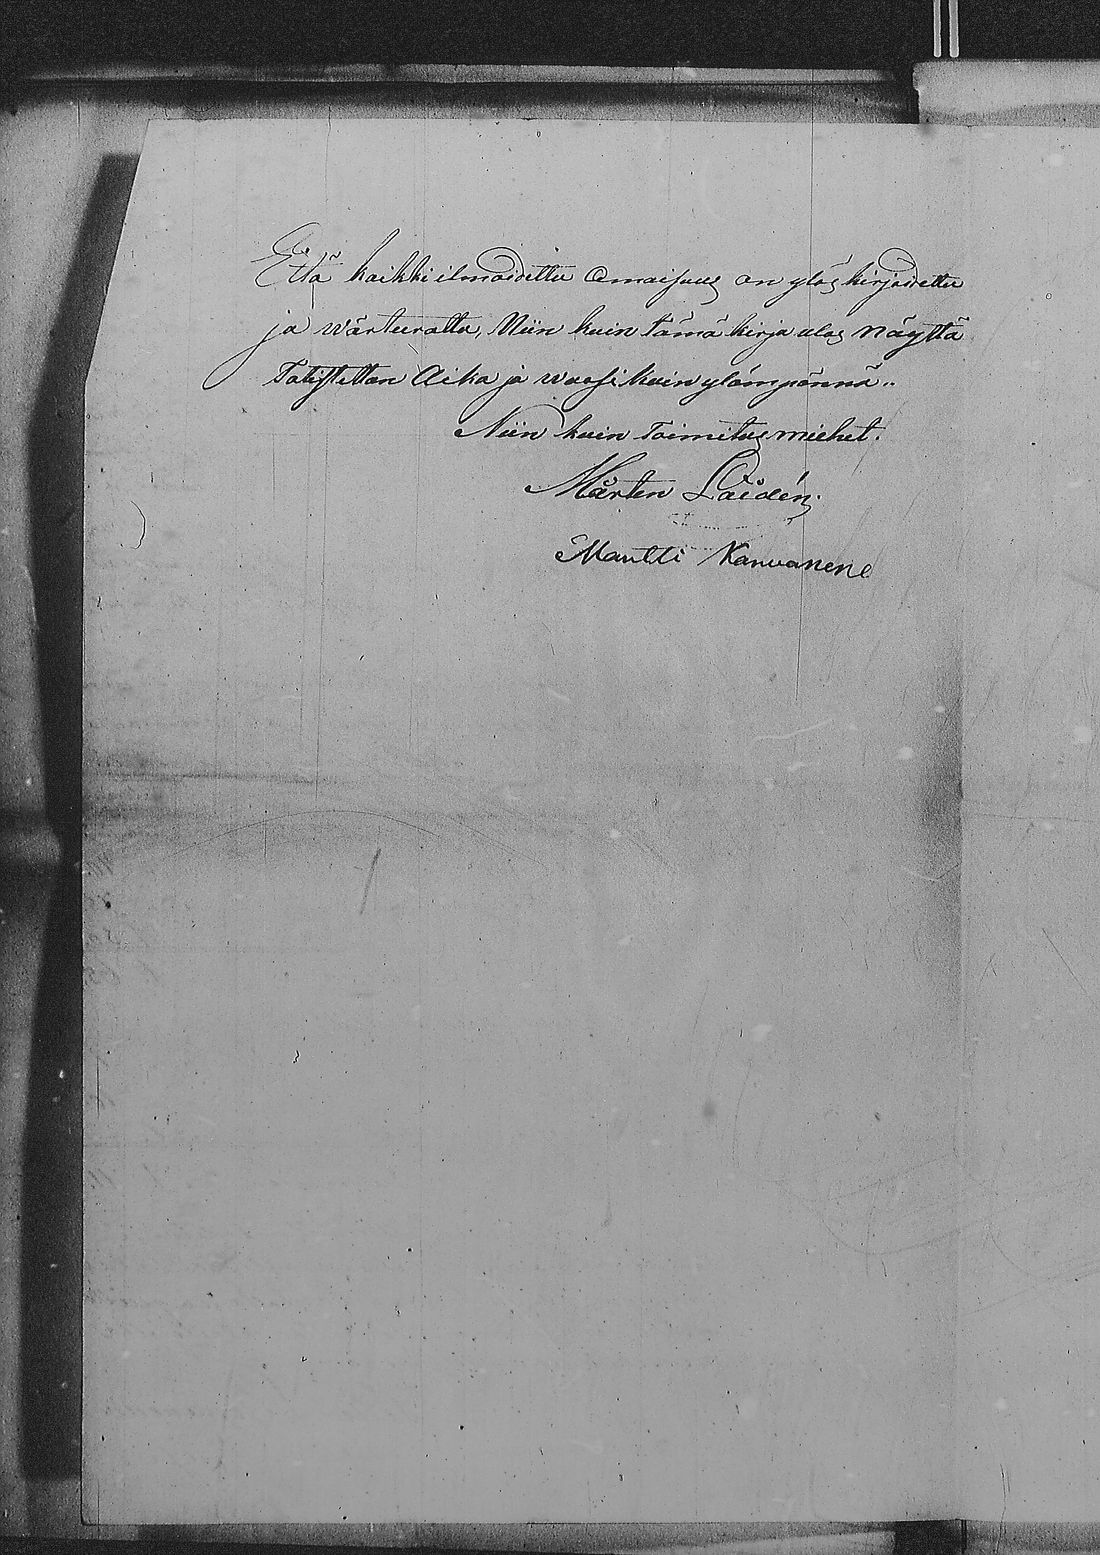 Että kaikki ilmoidettu Omaisuus on ylös kirjoidettu
ja wärteerattu, Niin kuin tämä kirja ulos näyttä
Totistettan Aika ja wuosi kuin ylämpännä..
Niin kuin Toimitus miehet.
Mårten Laidén
Martti Karvanene